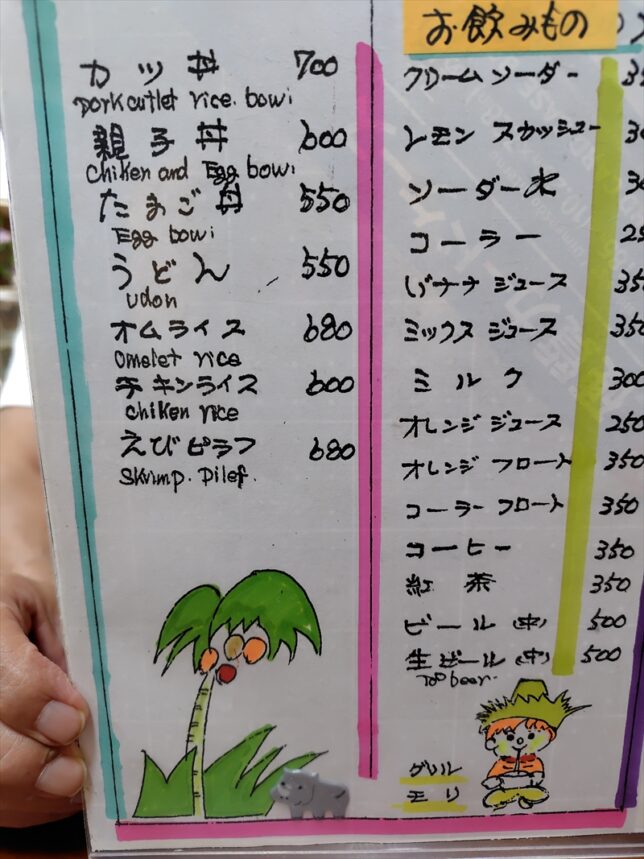 カツ丼 700
Porkcutlet rice. bowi
親子丼 600
Chiken and Egg bowi
たまご丼 550
Egg bowi
うどん 550
udon
オムライス 680
Omelet rice
チキンライス 600
Chiken rice
えびピラフ 680
Skrimp. Pilef.
お飲みもの
クリームソーダー
レモンスカッシュー
ソーダー水
コーラー
バナナジュース 350
ミックスジュース 350
ミルク 300
オレンジジュース 250
オレンジフロート 350
コーラーフロート 350
コーヒー 350
紅茶 350
ビール(中) 500
生ビール(中) 500
グリル
モリ